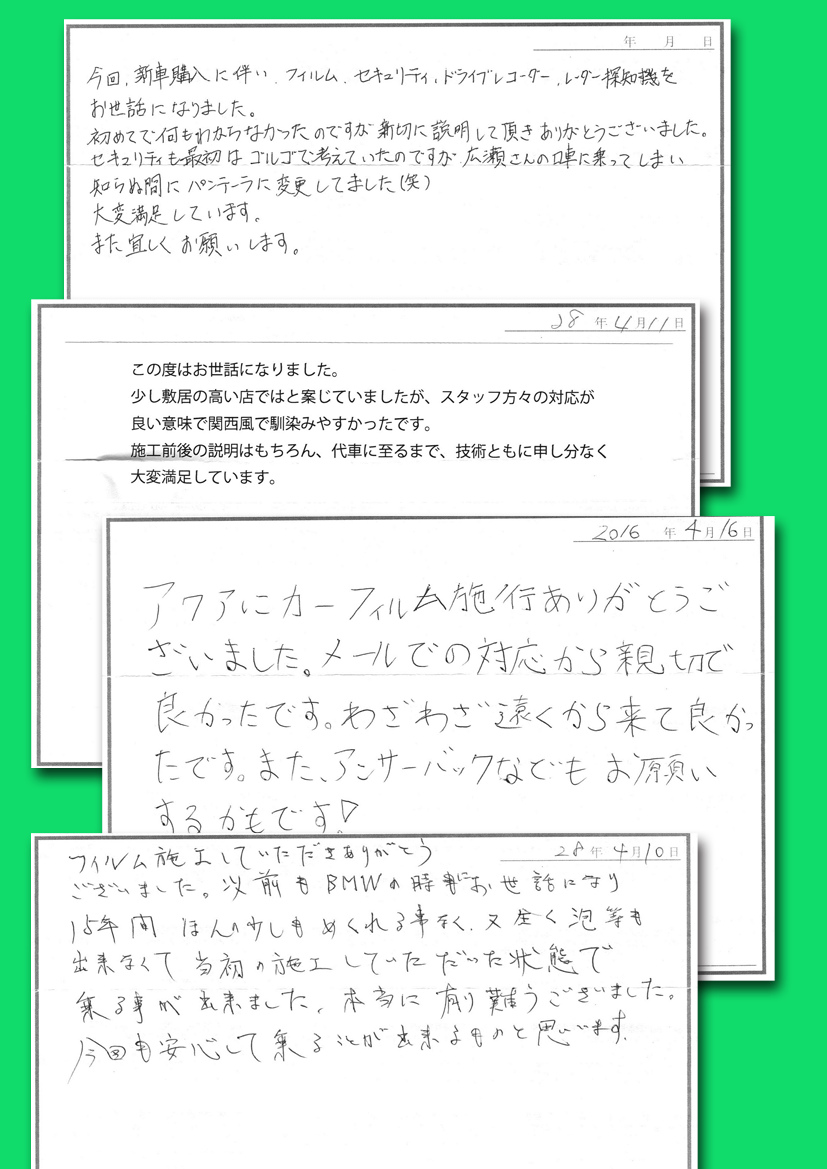 年 月 日
今回、新車購入に伴い、フィルム、セキュリティ、ドライブレコーダー、レーダー探知機を
お世話になりました。
初めてで何もわからなかったのですが親切に説明して頂きありがとうございました。
セキュリティも最初はゴルゴで考えていたのですが広瀬さんの口車に乗ってしまい
知らぬ間にパンテーラに変更してました(笑)
大変満足しています。
また宜しくお願いします。
28年4月11日
この度はお世話になりました。
少し敷居の高い店ではと案じていましたが、スタッフ方々の対応が
良い意味で関西風で馴染みやすかったです。
施工前後の説明はもちろん、代車に至るまで、技術ともに申し分なく
大変満足しています。
2016年4月16日
アクアにカーフィルム施行ありがとうご
ざいました。メールでの対応から親切で
良かったです。わざわざ遠くから来て良かっ
たです。また、アンサーバックなどもお願い
するかもです!
28年4月10日
フィルム施工していただきありがとう
ございました。以前もBMWの時にお世話になり
15年間ほんの少しもめくれる事なく、又全く泡等も
出来なくて当初の施工していただいた状態で
乗る事が出来ました。本当に有り難うございました。
今回も安心して乗ることが出来るものと思います。